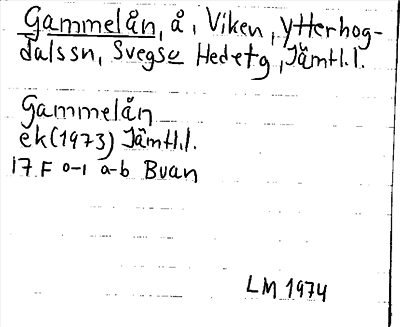 Gammelån, å, Viken, Ytterhog-
dalssn, Svegs Hedetg, Jämtl.l.
Gammelån
ek (1973) Jämtl.l.
17 F 0-1 a-b Buan
LM 1974